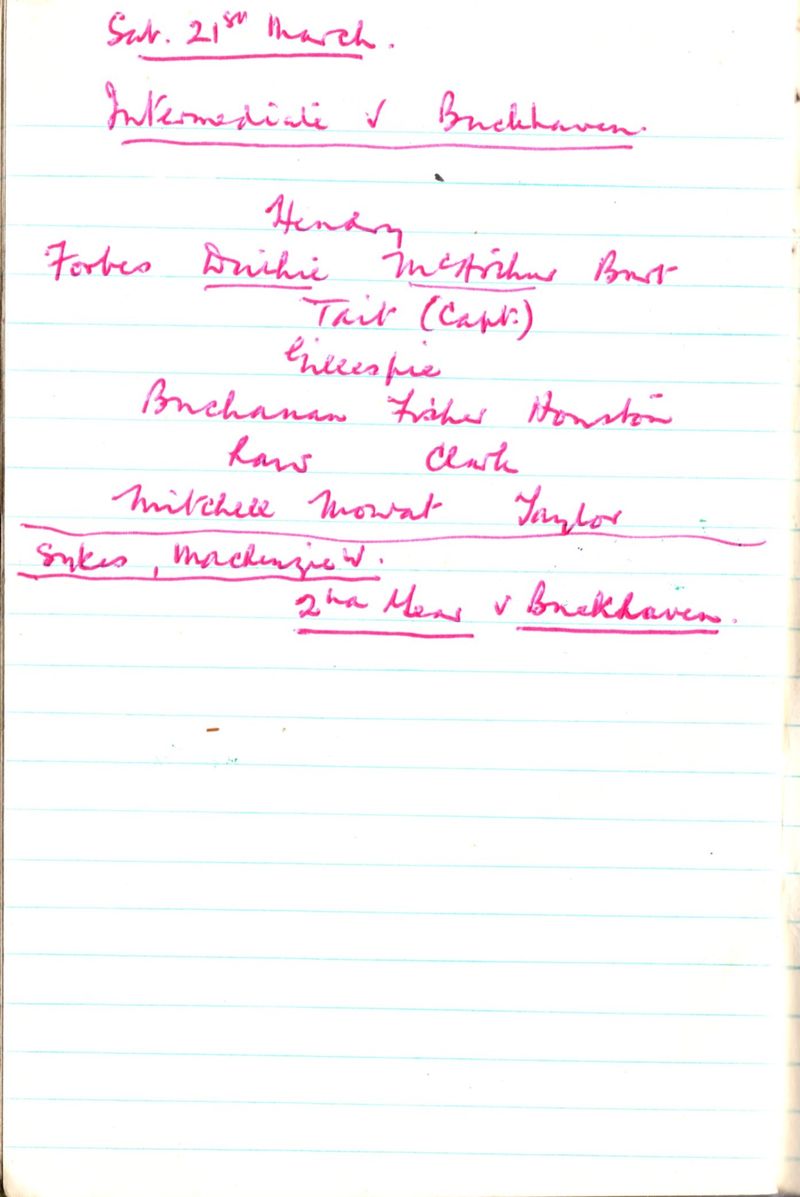 Sat. 21st March.
Intermediate v Buckhaven.
Hendry
Forbes Duthie McArthur Burt
Tait (Capt.)
Gillespie
Buchanan Fisher Houston
Clark
Mitchell Mowat Taylor
Sykes, Mackenzie W.
2nd v Buckhaven.